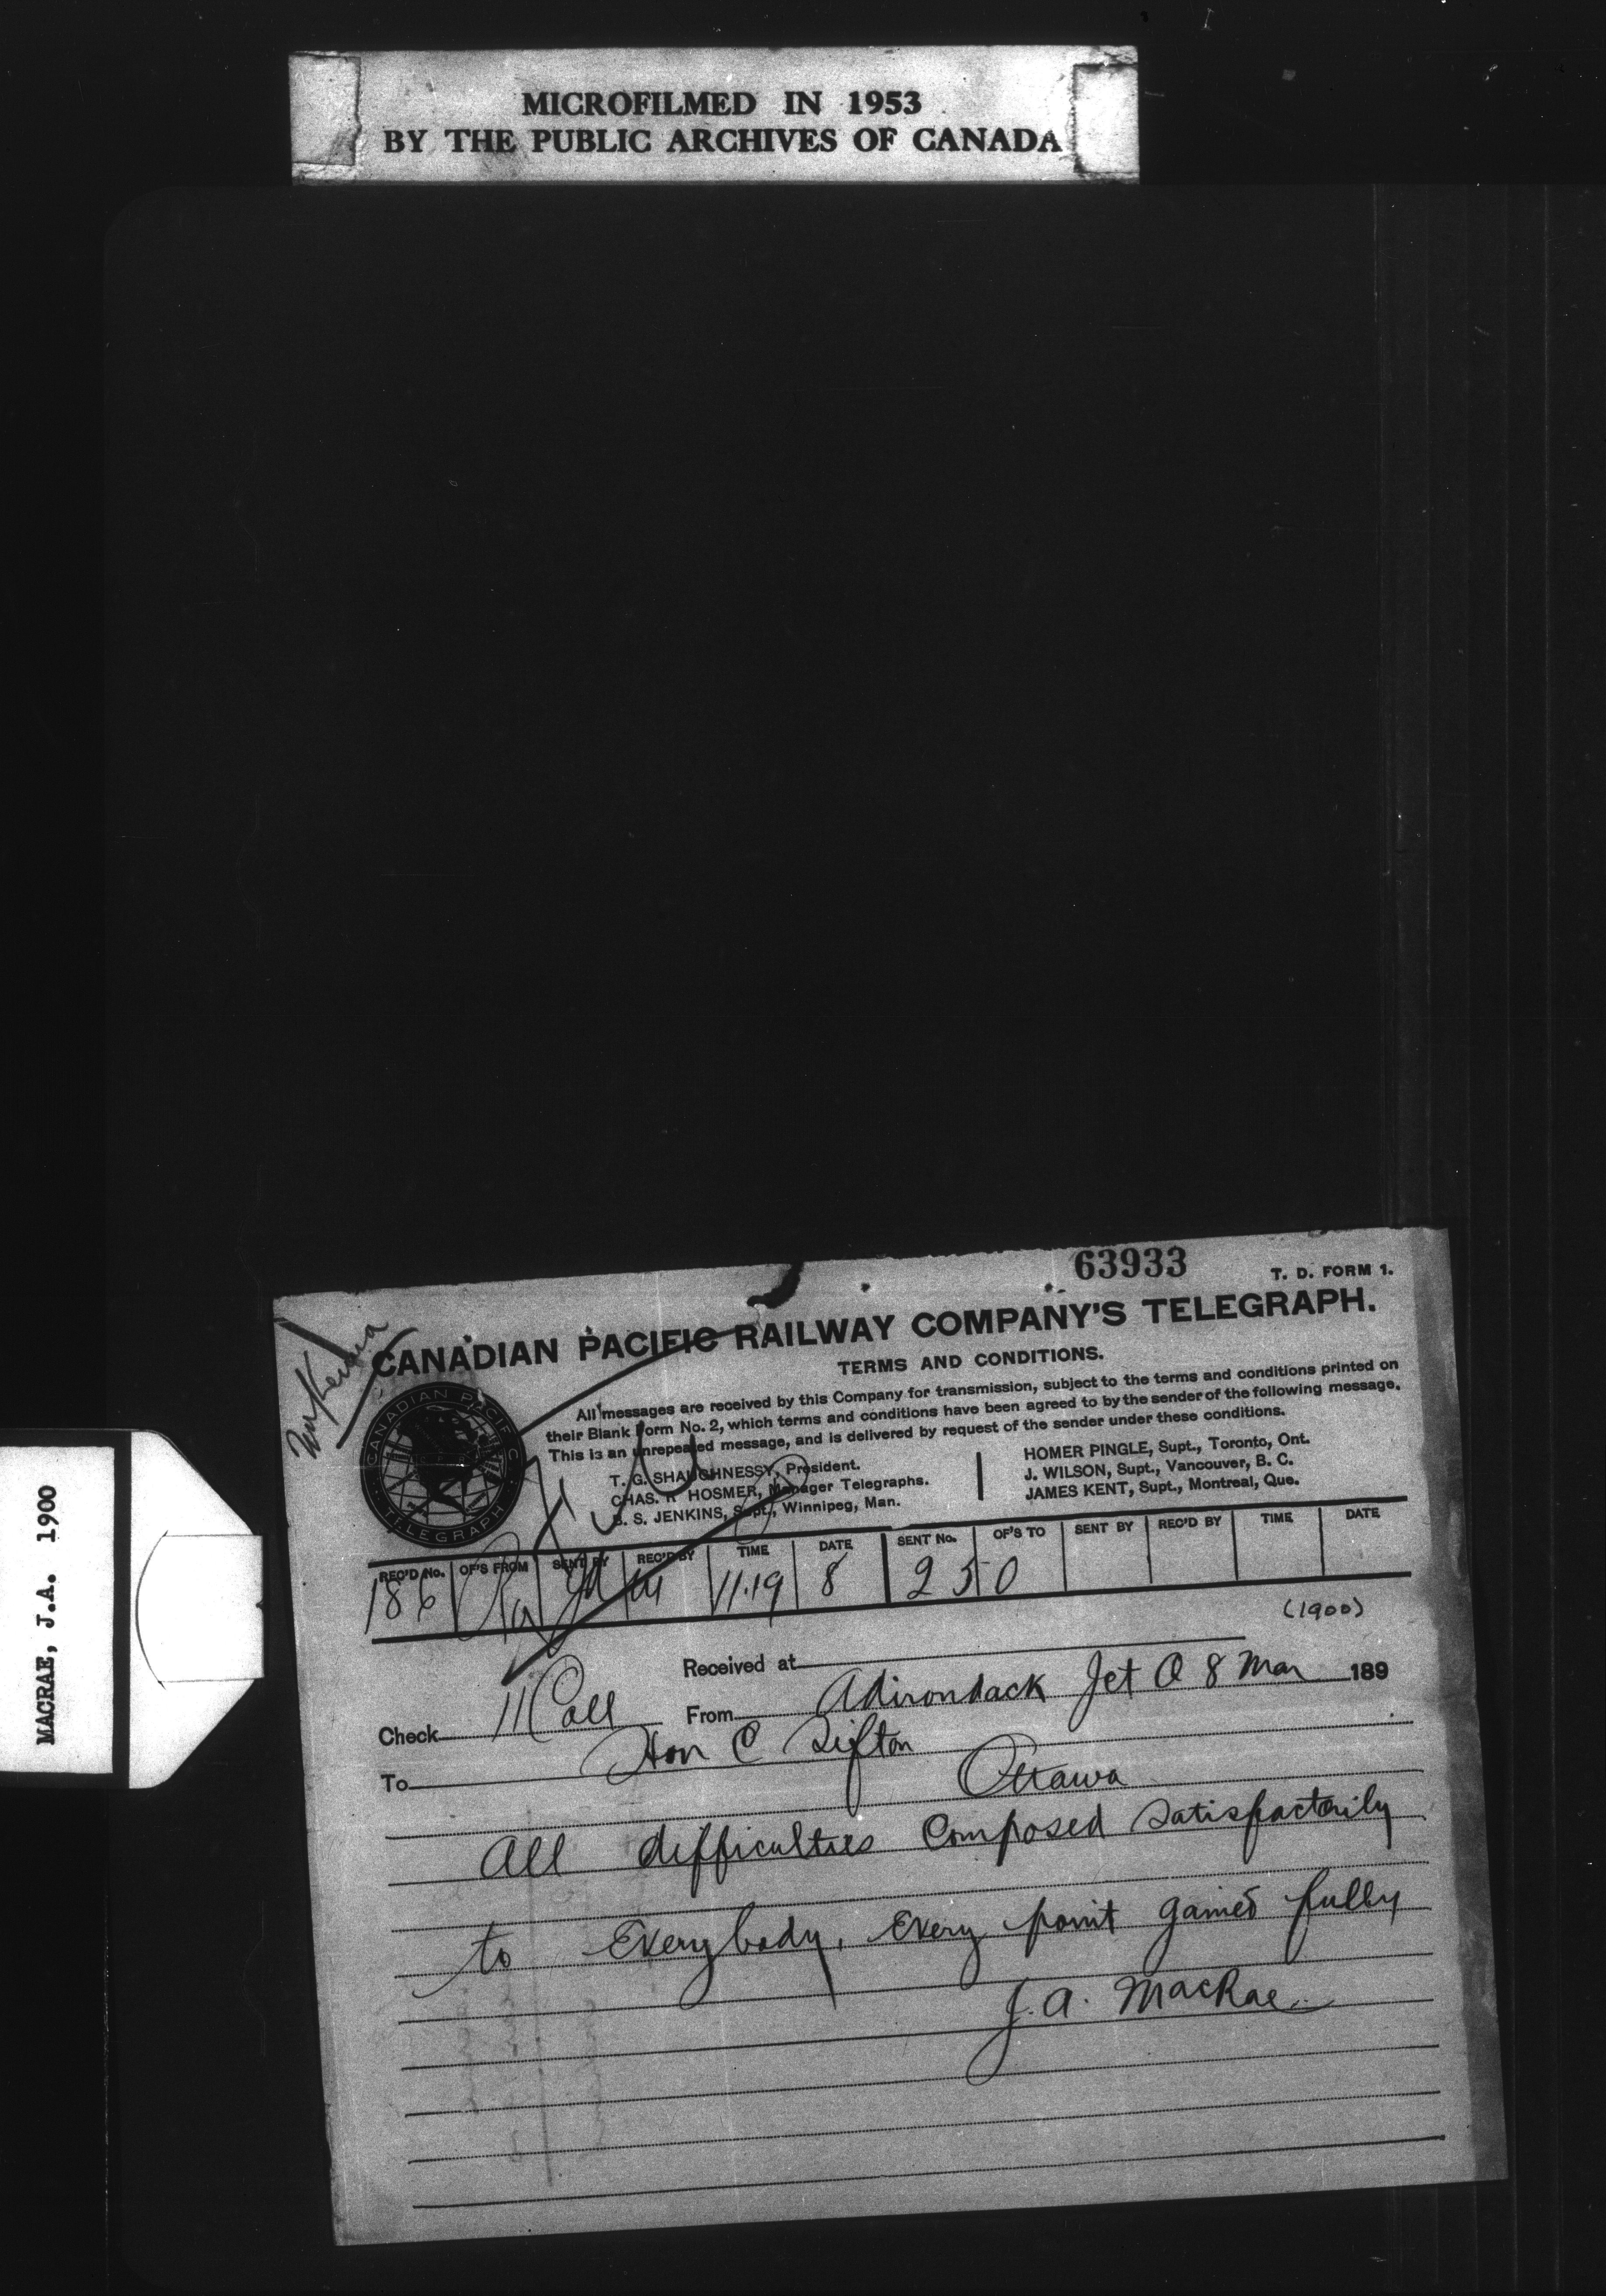 MICROFILMED IN 1953
BY THE PUBLIC ARCHIVES OF CANADA
MACRAE, J.A. 1900
63933
T. D. FORM 1.
CANADIAN PACIFIC RAILWAY COMPANY'S TELEGRAPH.
TERMS AND CONDITIONS.
All messages are received by this Company for transmission, subject to the terms and conditions printed on
their Blank Form No. 2, which terms and conditions have been agreed to by the sender of the following message.
This is an unrepeated message, and is delivered by request of the sender under these conditions.
T. G. SHAUGHNESSY, President.
CHAS. R HOSMER, Manager Telegraphs.
B. S. JENKINS, Supt., Winnipeg, Man.
HOMER PINGLE, Supt., Toronto, Ont.
J. WILSON, Supt., Vancouver, B. C.
JAMES KENT, Supt., Montreal, Que.
CANADIAN PACIFIC
TELEGRAPH
REC'D No. OF'S FROM SENT BY REC'D BY TIME DATE SENT No. OF'S TO SENT BY REC'D BY TIME DATE
186 11.19 8 250
(1900)
Received at
Check 11 Coll From Adirondack Jct Q 8 Mar 189
To Hon C Sifton
Ottawa
All difficulties Composed Satisfactorily
to Everybody, Every point gained fully
J. A. MacRae